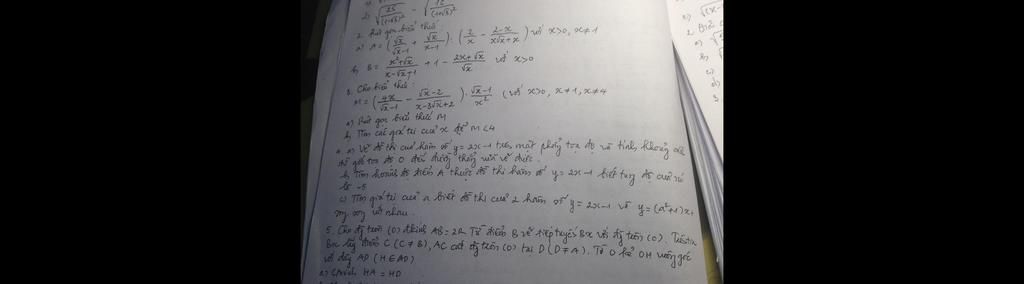 b) √(25/(1-√3)²) - √(12/(1+√3)²)
2. Rút gọn biểu thức
a) A = (√x/(√x-1) + √x/(x-1)) : (2/x - (2-x)/(x√x+x)) với x>0, x≠1
b) B = (x²+√x)/(x-√x+1) + 1 - (2x+√x)/√x với x>0
3. Cho biểu thức:
M = (4x/(√x-1) - (√x-2)/(x-3√x+2)) · (√x-1)/x² (với x>0, x≠1, x≠4
a) Rút gọn biểu thức M
b) Tìm các giá trị của x để M<4
4. a) Vẽ đồ thị của hàm số y=2x-1 trên mặt phẳng tọa độ và tính khoảng cách
từ gốc tọa độ O đến đường thẳng vừa vẽ được.
b) Tìm hoành độ điểm A thuộc đồ thị hàm số y=2x-1 biết tung độ của nó
là -5
c) Tìm giá trị của a biết đồ thị của 2 hàm số y=2x-1 và y=(a²+1)x+
song song với nhau.
5. Cho đg tròn (O) đkính AB=2R. Từ điểm B vẽ tiếp tuyến Bx với đg tròn (O). Trên tia
Bx lấy điểm C (C≠B), AC cắt đg tròn (O) tại D (D≠A). Từ O kẻ OH vuông góc
với dây AD (H∈AD)
a) C/minh HA = HD